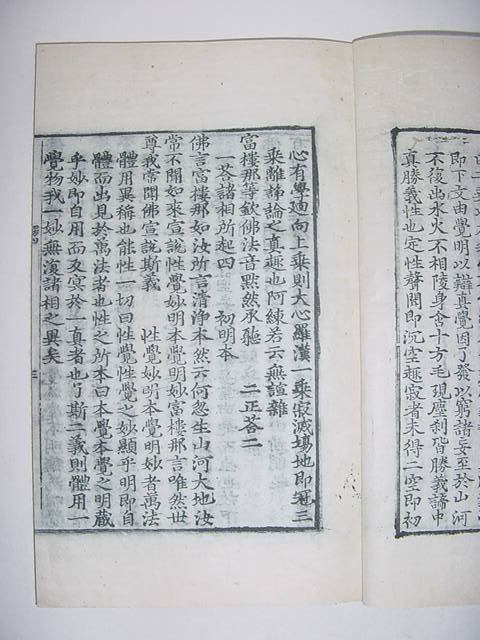 即下文由覺明以辯真覺因了發以窮諸妄至於山河
不復出水火不相陵身含十方毛現塵刹皆勝義諦中
真勝義性也定性聲聞即沉空趣寂者未得二空即初
心有學廻向上乘則大心羅漢一乘寂滅場地即冠三
乘離諍論之直趣也阿練若云無諠雜
富樓那等欽佛法音黙然承聽　二正荅二
一荅諸相所起四　初明本
佛言富樓那如汝所言清淨本然云何忽生山河大地汝
常不聞如來宣說性覺妙明本覺明妙富樓那言唯然世
尊我常聞佛宣說斯義　性覺妙明本覺明妙者萬法
體用異稱也能性一切曰性覺性覺之妙顯乎明即自
體而出見於萬法者也性之所本曰本覺本覺之明藏
乎妙即自用而及㝠於一真者也了斯二義則體用一
覺物我一妙無復諸相之異矣